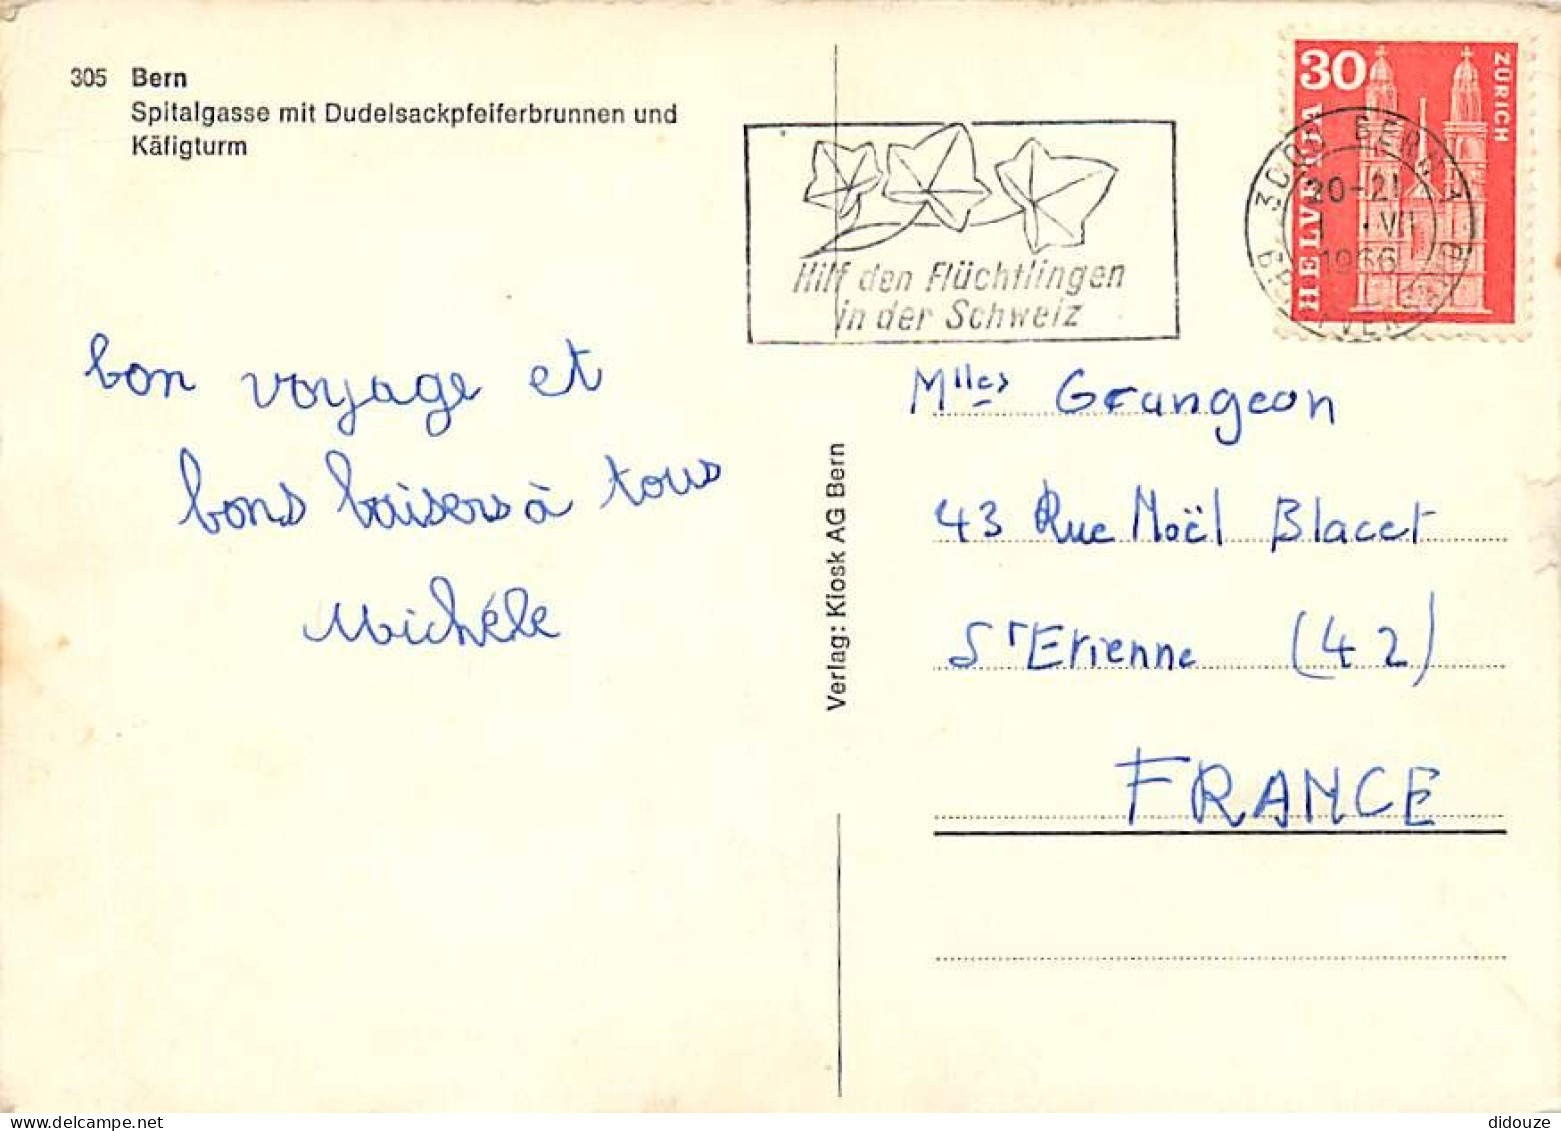 305 Bern
Spitalgasse mit Dudelsackpfeiferbrunnen und
Käfigturm
bon voyage et
bons baisers à tous
Michéle
Verlag: Kiosk AG Bern
Hilf den Flüchtlingen
in der Schweiz
30
HELVETIA
ZÜRICH
3000 BERN
20-21
VII
1966
BRIEFVERSAND
Mlles Grangeon
43 Rue Noël Blacet
St Etienne (42)
FRANCE
didouze